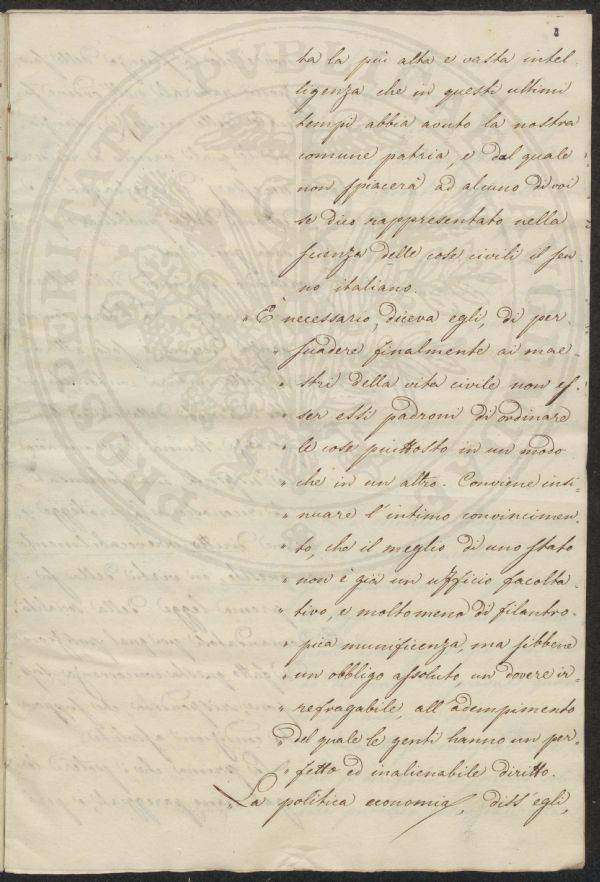 1
ta la più alta e vasta intel-
ligenza che in questi ultimi
tempi abbia avuto la nostra
comune patria, e dal quale
non spiacerà ad alcuno di voi
se dico rappresentato nella
scienza delle cose civili il sen-
no italiano.
" È necessario, diceva egli, di per-
" suadere finalmente ai mae-
" stri della vita civile non es-
" ser essi padroni di ordinare
" le cose piuttosto in un modo
" che in un altro. Conviene insi-
" nuare l'intimo convincimen-
" to, che il meglio di uno stato
" non è già un ufficio facolta-
" tivo, e molto meno di filantro-
" pica munificenza, ma sibbene
" un obbligo assoluto un dovere ir-
" refragabile, all'adempimento
" del quale le genti hanno un per-
" fetto ed inalienabile diritto.
" La politica economia, diss'egli,
PRO VERITATE
PVBLICA